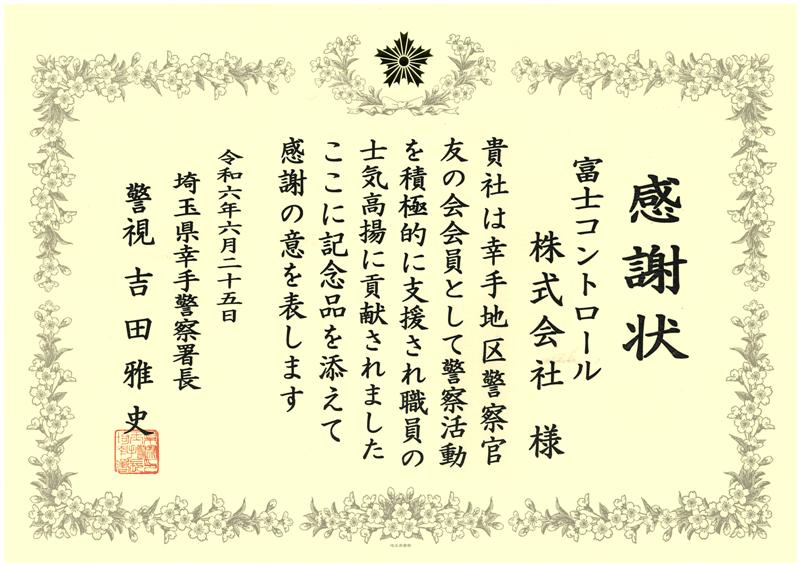 感謝状
富士コントロール
株式会社 様
貴社は幸手地区警察官
友の会会員として警察活動
を積極的に支援され職員の
士気高揚に貢献されました
ここに記念品を添えて
感謝の意を表します
令和六年六月二十五日
埼玉県幸手警察署長
警視 吉田雅史